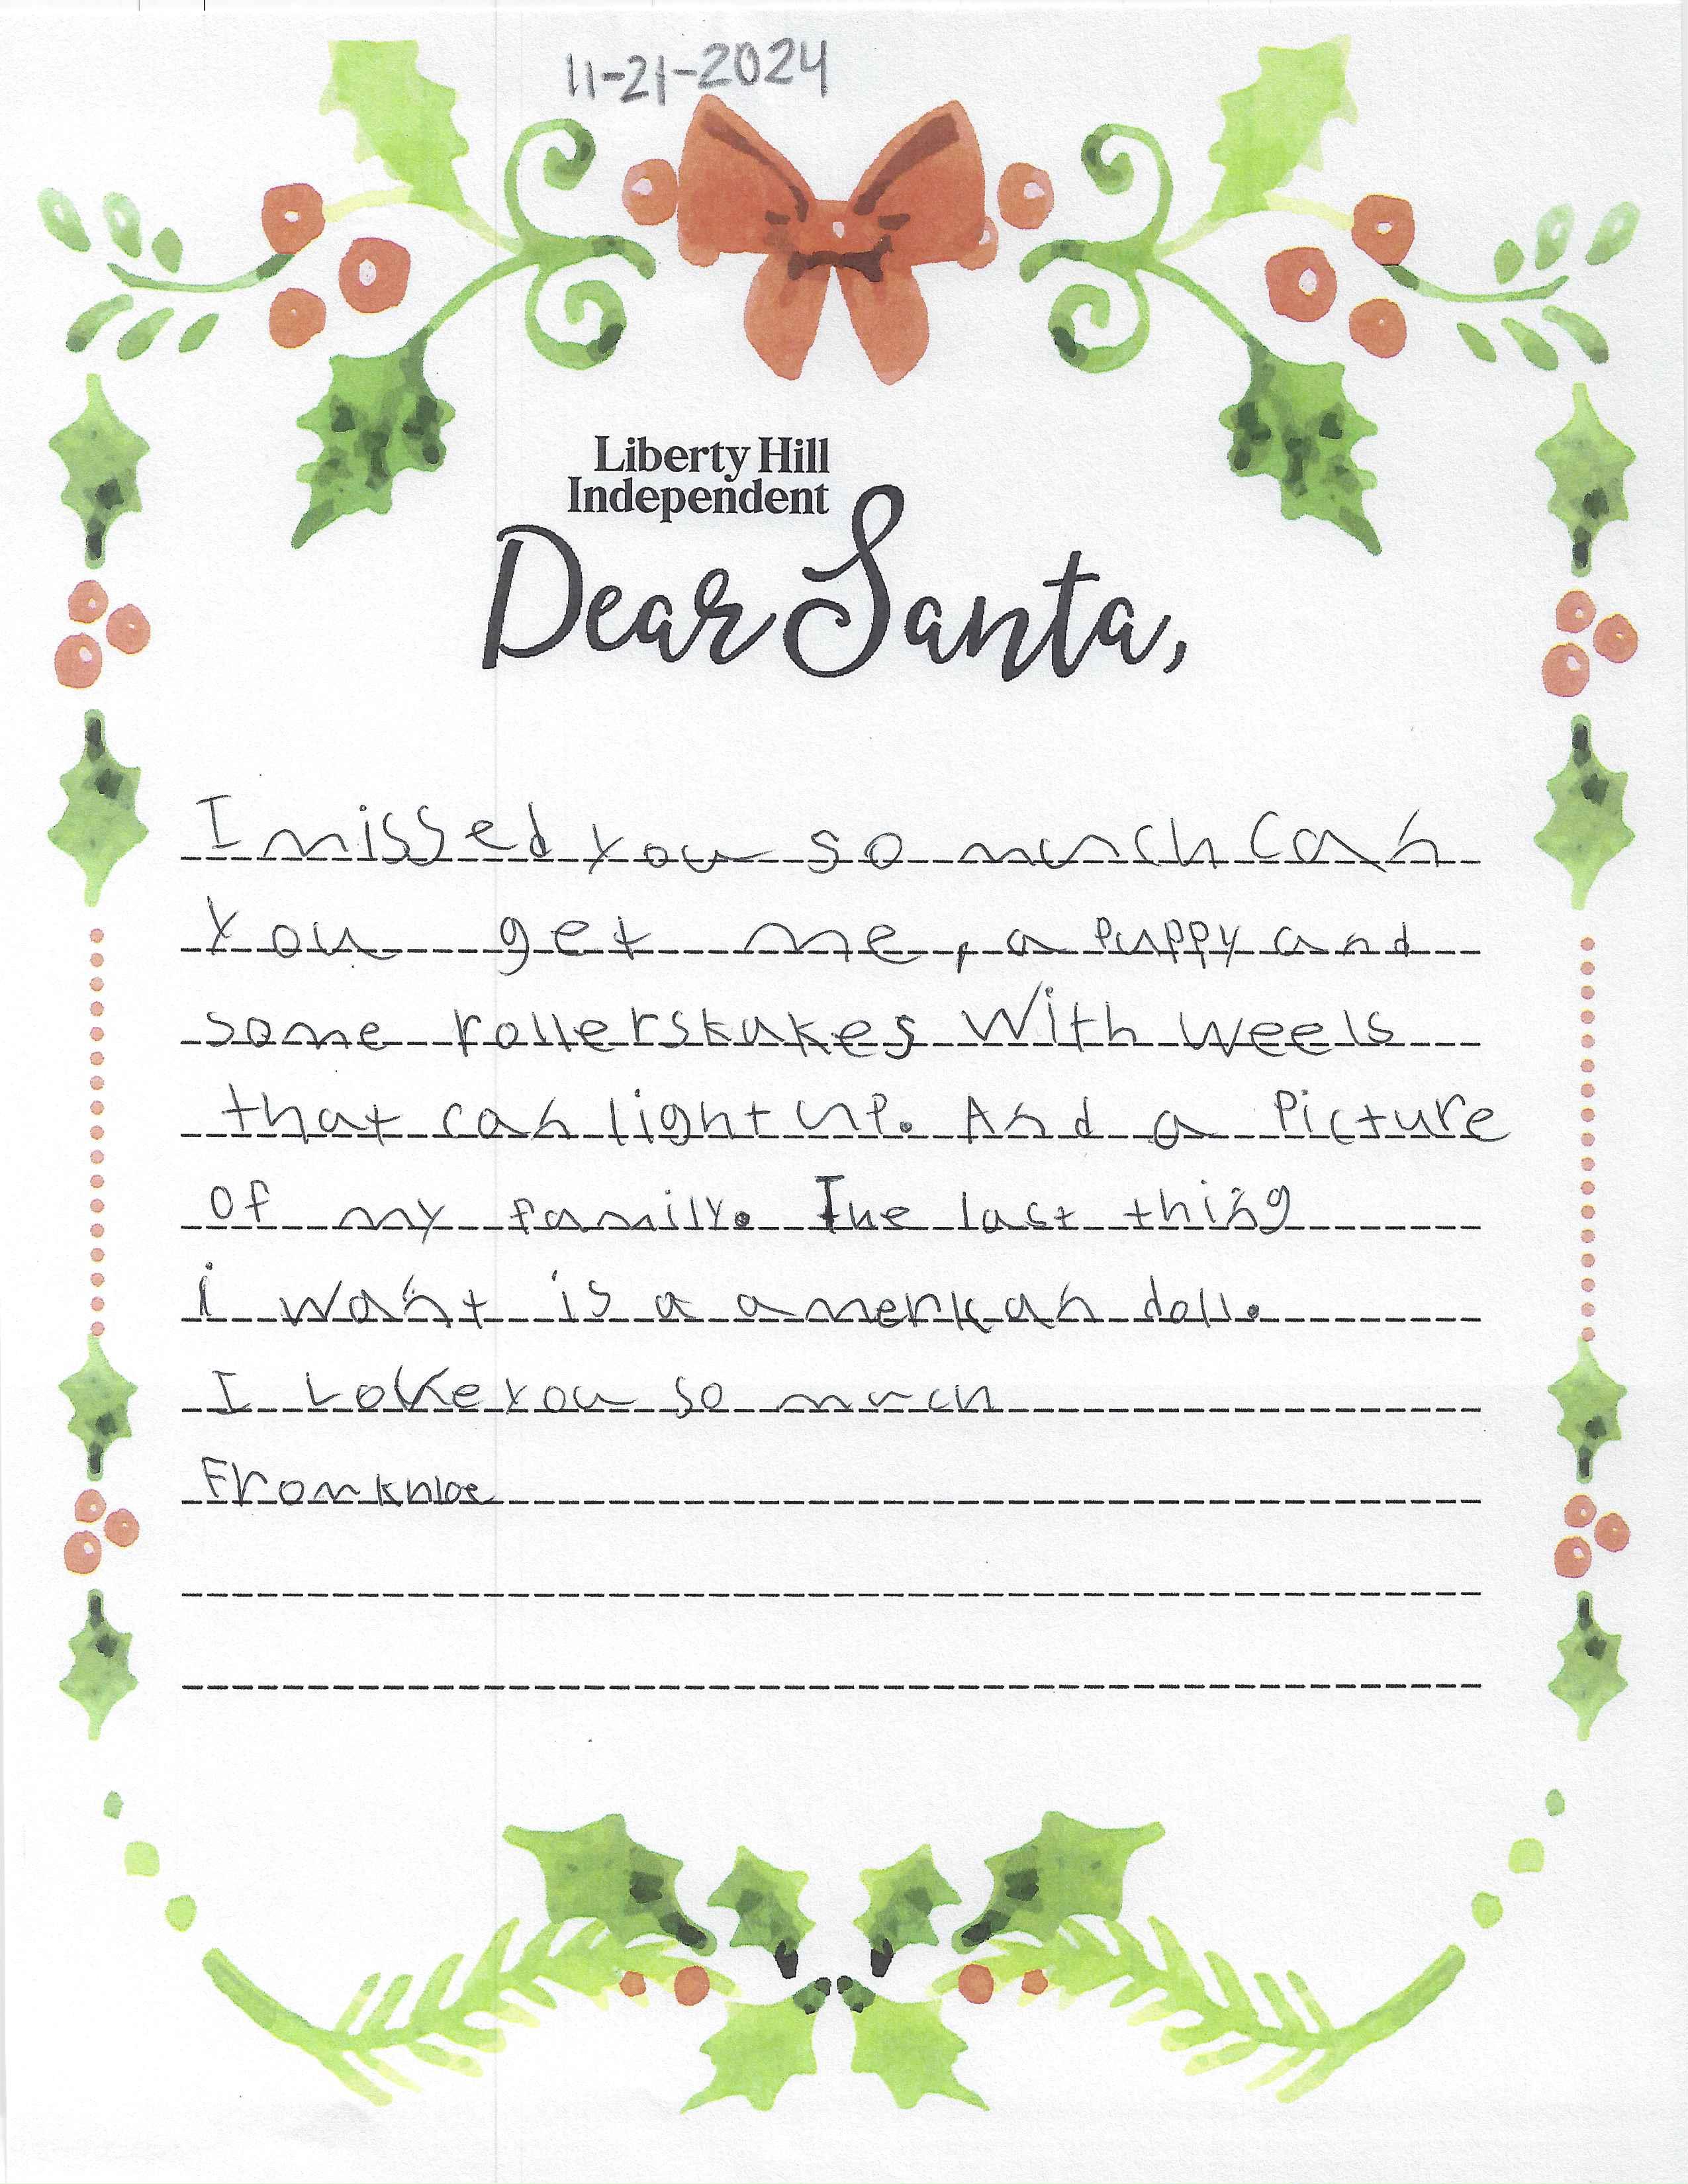 11-21-2024
Liberty Hill
Independent
Dear Santa,
I missed you so much Can
You get me, a Puppy and
some rollerskakes With weels
that can light up. And a Picture
Of my family. The last thing
i want is a amerikan doll.
I Love you so much
From khloe